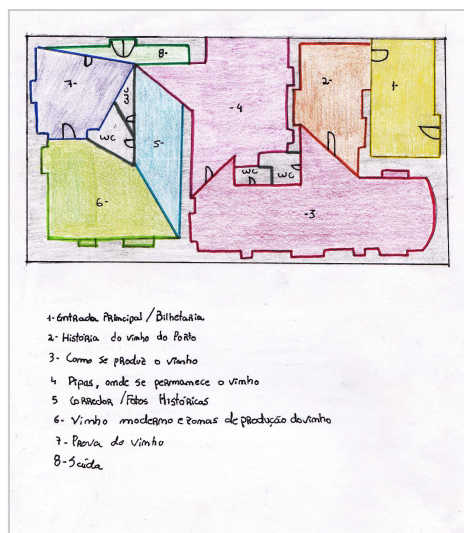 8-
7-
3
2-
1-
-4
WC
5-
WC
WC
6-
-3
1- Entrada Principal / Bilhetaria
2- História do vinho do Porto
3- Como se produz o vinho
4 Pipas, onde se permamece o vinho
5 Corredor / Fotos Históricas
6- Vinho moderno e zonas de produção do vinho
7- Prova do vinho
8- Saída